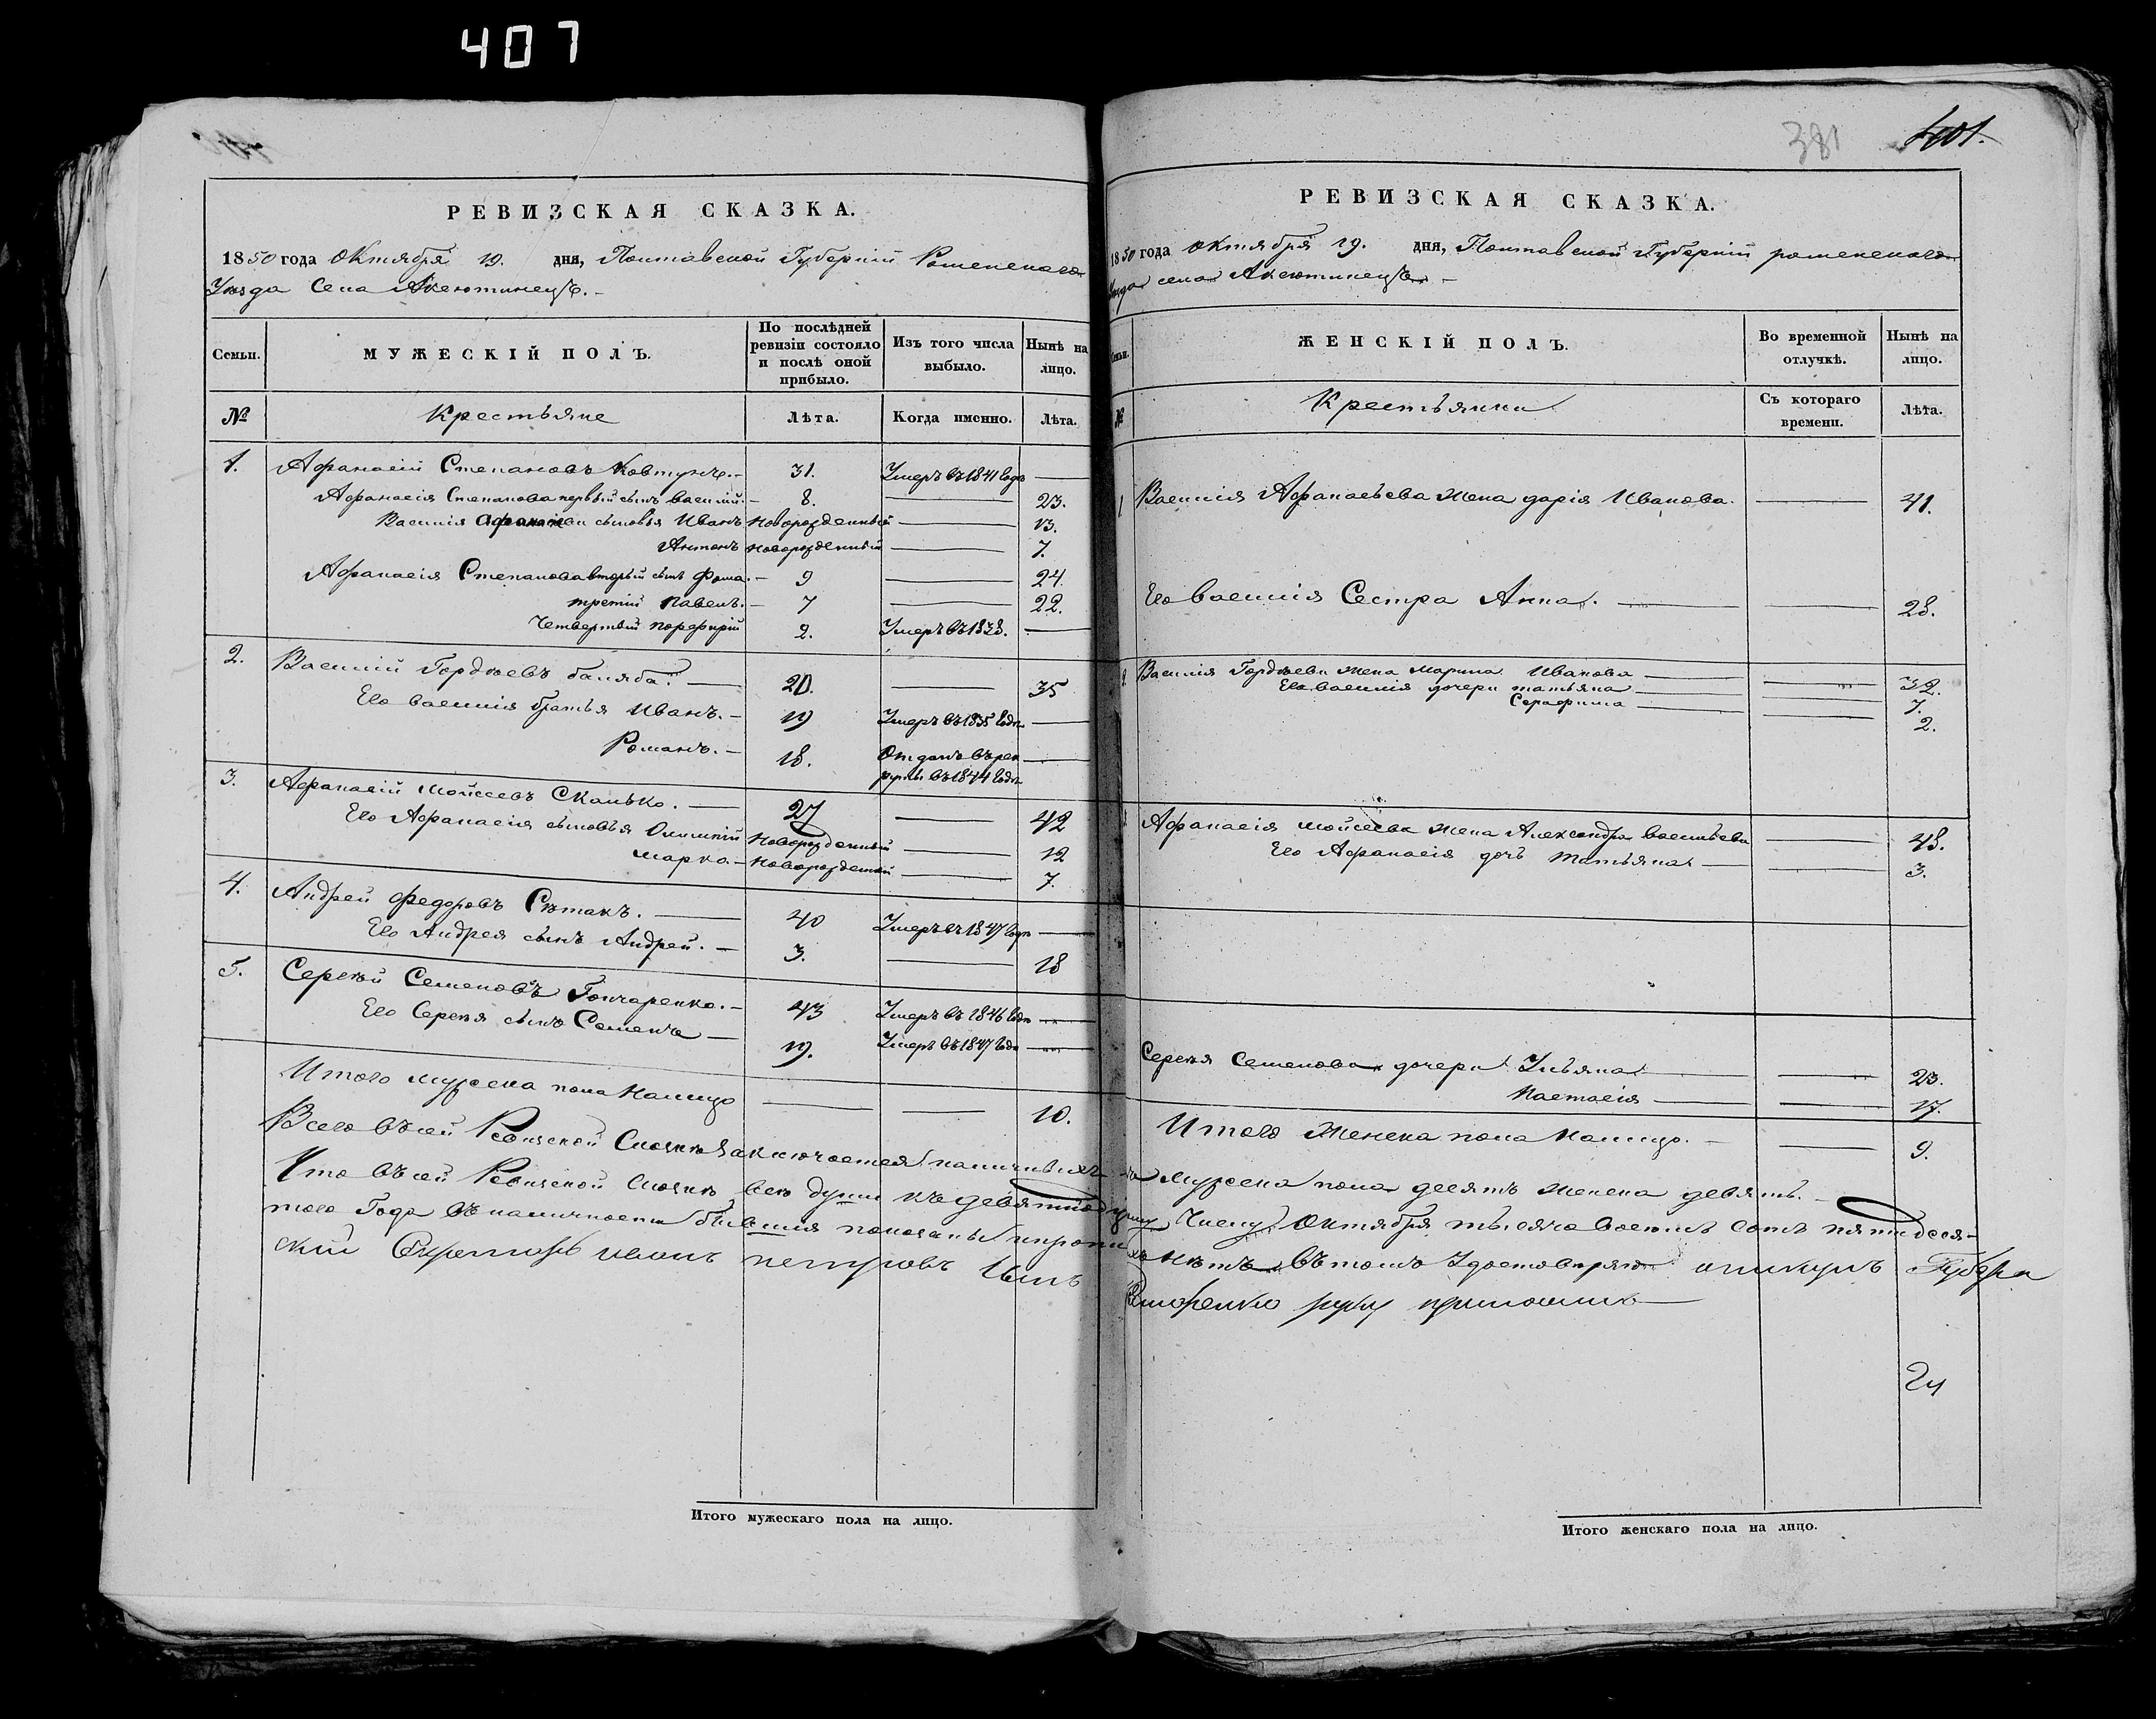 407
381 401.
РЕВИЗСКАЯ СКАЗКА.
1850 года Октября 19. дня, Полтавской Губерніи Роменскаго
Уезда Села Аксютинецъ.-
Семьи.
МУЖЕСКІЙ ПОЛЪ.
По послѣдней ревизіи состояло и послѣ оной прибыло.
Изъ того числа выбыло.
Нынѣ на лицо.
№
Крестьяне
Лѣта.
Когда именно.
Лѣта.
1. Афанасій Степановъ Ковтунъ.- 31. Умеръ въ 1841 годѣ —
Афанасія Степанова первый сынъ Василій.- 8. — 23.
Василія Афанасіеви сыновья Иванъ Новорожденный — 13.
Антонъ Новорожденный — 7.
Афанасія Степанова вторый сынъ Фома.- 9 — 24.
третій Павелъ.- 7 — 22.
Четвертый Порфирій 2. Умеръ въ 1838. —
2. Василій Гордѣевъ баляба. — 20. — 35
Его Василія братья Иванъ.- 19 Умеръ въ 1835 годѣ —
Романъ.- 18. Отданъ въ рек
руты въ 1844 годѣ —
3. Афанасій Мойсеевъ Скалько. — 27 — 42
Его Афанасія сыновья Олимпій Новорожденный — 12
Марко- Новорожденый — 7.
4. Андрей Федоровъ Сѣтакъ. — 40 Умеръ въ 1847 годѣ —
Его Андрея сынъ Андрей. - 3. — 18
5. Сергѣй Семеновъ Гончаренко.- 43 Умеръ въ 1846 годѣ —
Его Сергѣя сынъ Семенъ — 19. Умеръ въ 1847 годѣ —
Итого мужеска пола Налицо — — 10.
РЕВИЗСКАЯ СКАЗКА.
1850 года Октября 19. дня, Полтавской Губерніи роменскаго
Уезда села Аксютинецъ -
Семьи.
ЖЕНСКІЙ ПОЛЪ.
Во временной отлучкѣ.
Нынѣ на лицо.
№
Крестьянки
Съ котораго времени.
Лѣта.
1 Василія Афанасьева жена дарія Иванова. — 41.
Его Василія Сестра Анна. — — 28.
2. Василія Гордѣеви жена Марина Иванова — — 32.
Его Василія дочери татьяна — — 7.
Серафима — — 2.
Афанасія Мойсеева жена Александра Васильеви — 48.
Его Афанасія дочъ татьяна — — 3.
Сергѣя Семенова дочери Ульяна — — 23.
Настасія — — 17.
Итого Женска пола Налицо. - — 9.
Всего въ сей Ревизской Сказкѣ Заключается наличныхъ мужеска пола десять женска девять. -
Что въ сей Ревизской Сказкѣ всѣ души къ девятнадцатому Числу Октября тысяча восемь сотъ пятидеся-
таго Года въ наличности бывшия показаны и прописныхъ нѣтъ въ томъ Удостовѣряю опикунъ Губерн
скій Секретарь иванъ петровъ сынъ руку приложилъ —
24
Итого мужескаго пола на лицо.
Итого женскаго пола на лицо.